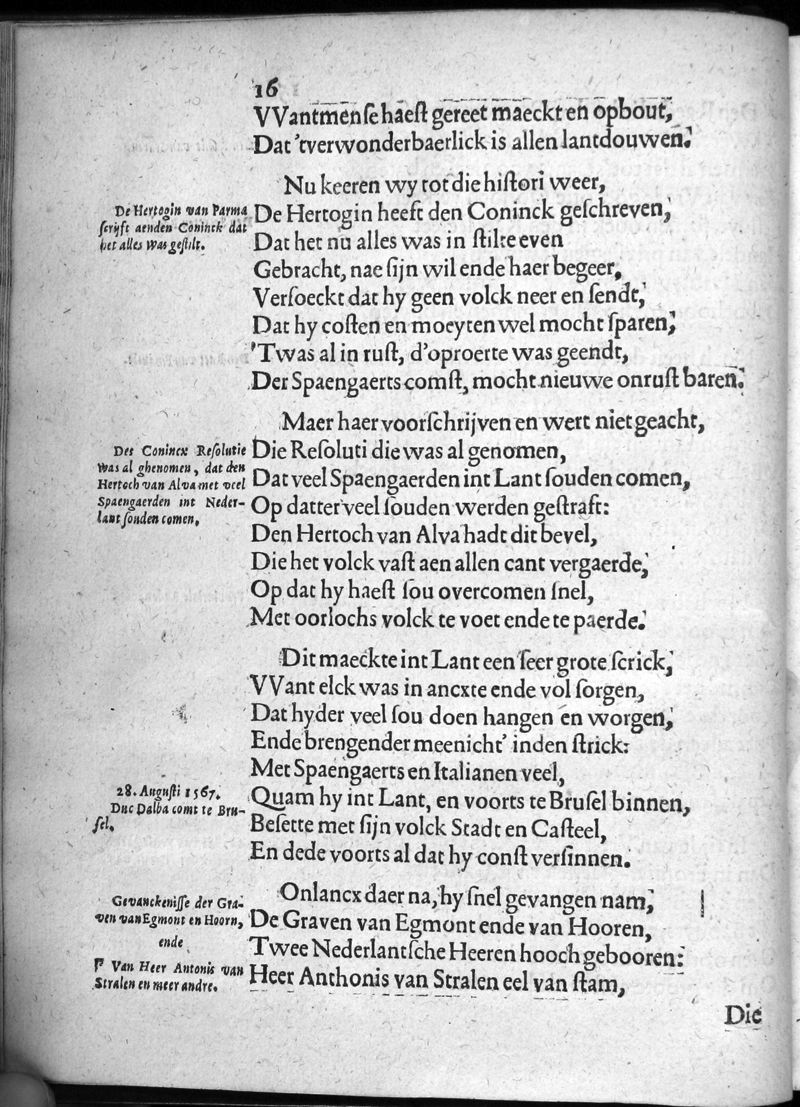 16
VVantmen ſe haeſt gereet maeckt en opbout,
Dat 'tverwonderbaerlick is allen lantdouwen.
Nu keeren wy tot die hiſtori weer,
De Hertogin van Parma
ſcrijft aenden Coninck dat
het alles Was geſtilt.
De Hertogin heeft den Coninck geſchreven,
Dat het nu alles was in ſtilte even
Gebracht, nae ſijn wil ende haer begeer,
Verſoeckt dat hy geen volck neer en ſendt,
Dat hy coſten en moeyten wel mocht ſparen,
'Twas al in ruſt, d'oproerte was geendt,
Der Spaengaerts comſt, mocht nieuwe onruſt baren.
Maer haer voorſchrijven en wert niet geacht,
Des Conincx Reſolutie
Was al ghenomen, dat den
Hertoch van Alva met veel
Spaengaerden int Neder-
lant ſouden comen.
Die Reſoluti die was al genomen,
Dat veel Spaengaerden int Lant ſouden comen,
Op datter veel ſouden werden geſtraft:
Den Hertoch van Alva hadt dit bevel,
Die het volck vaſt aen allen cant vergaerde,
Op dat hy haeſt ſou overcomen ſnel,
Met oorlochs volck te voet ende te paerde.
Dit maeckte int Lant een ſeer grote ſcrick,
VVant elck was in ancxte ende vol ſorgen,
Dat hyder veel ſou doen hangen en worgen,
Ende brengender meenicht' inden ſtrick:
Met Spaengaerts en Italianen veel,
28. Auguſti 1567.
Duc Dalba comt te Bru-
ſel.
Quam hy int Lant, en voorts te Bruſel binnen,
Beſette met ſijn volck Stadt en Caſteel,
En dede voorts al dat hy conſt verſinnen.
Onlancx daer na, hy ſnel gevangen nam,
Gevanckeniſſe der Gra-
ven van Egmont en Hoorn,
ende
Van Heer Antonis van
Stralen en meer andre.
De Graven van Egmont ende van Hooren,
Twee Nederlantſche Heeren hooch gebooren:
Heer Anthonis van Stralen eel van ſtam,
Die